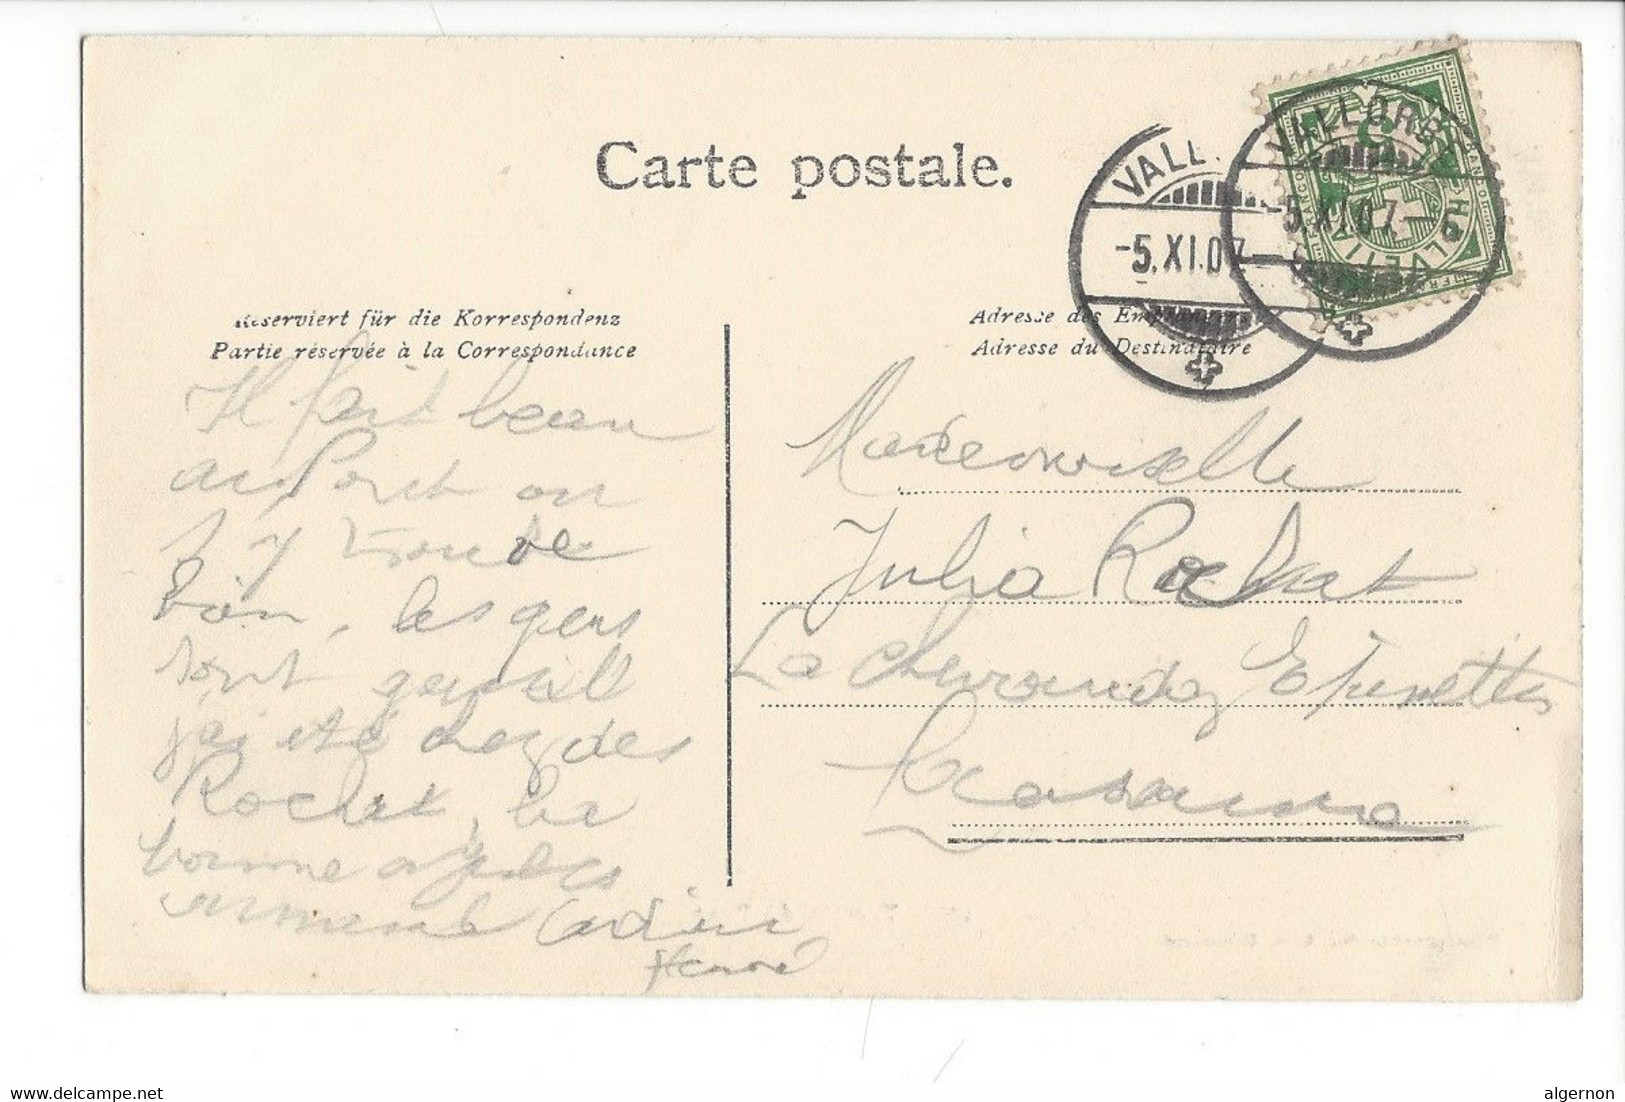 Carte postale.
VALL
-5.XI.07
VALLORBE
-5.XI.07.-6
HELVETIA
Reserviert für die Korrespondenz
Partie réservée à la Correspondance
Adresse des Empf
Adresse du Destinataire
Il fait beau
au Pont on
y trouve
bon, les gens
sont gentill
j'ai été chez des
Rochat, la
bonne
Adieu
Henri
Mademoiselle
Julia Rochat
La Epinettes
Lausanne
www.delcampe.net
algernon